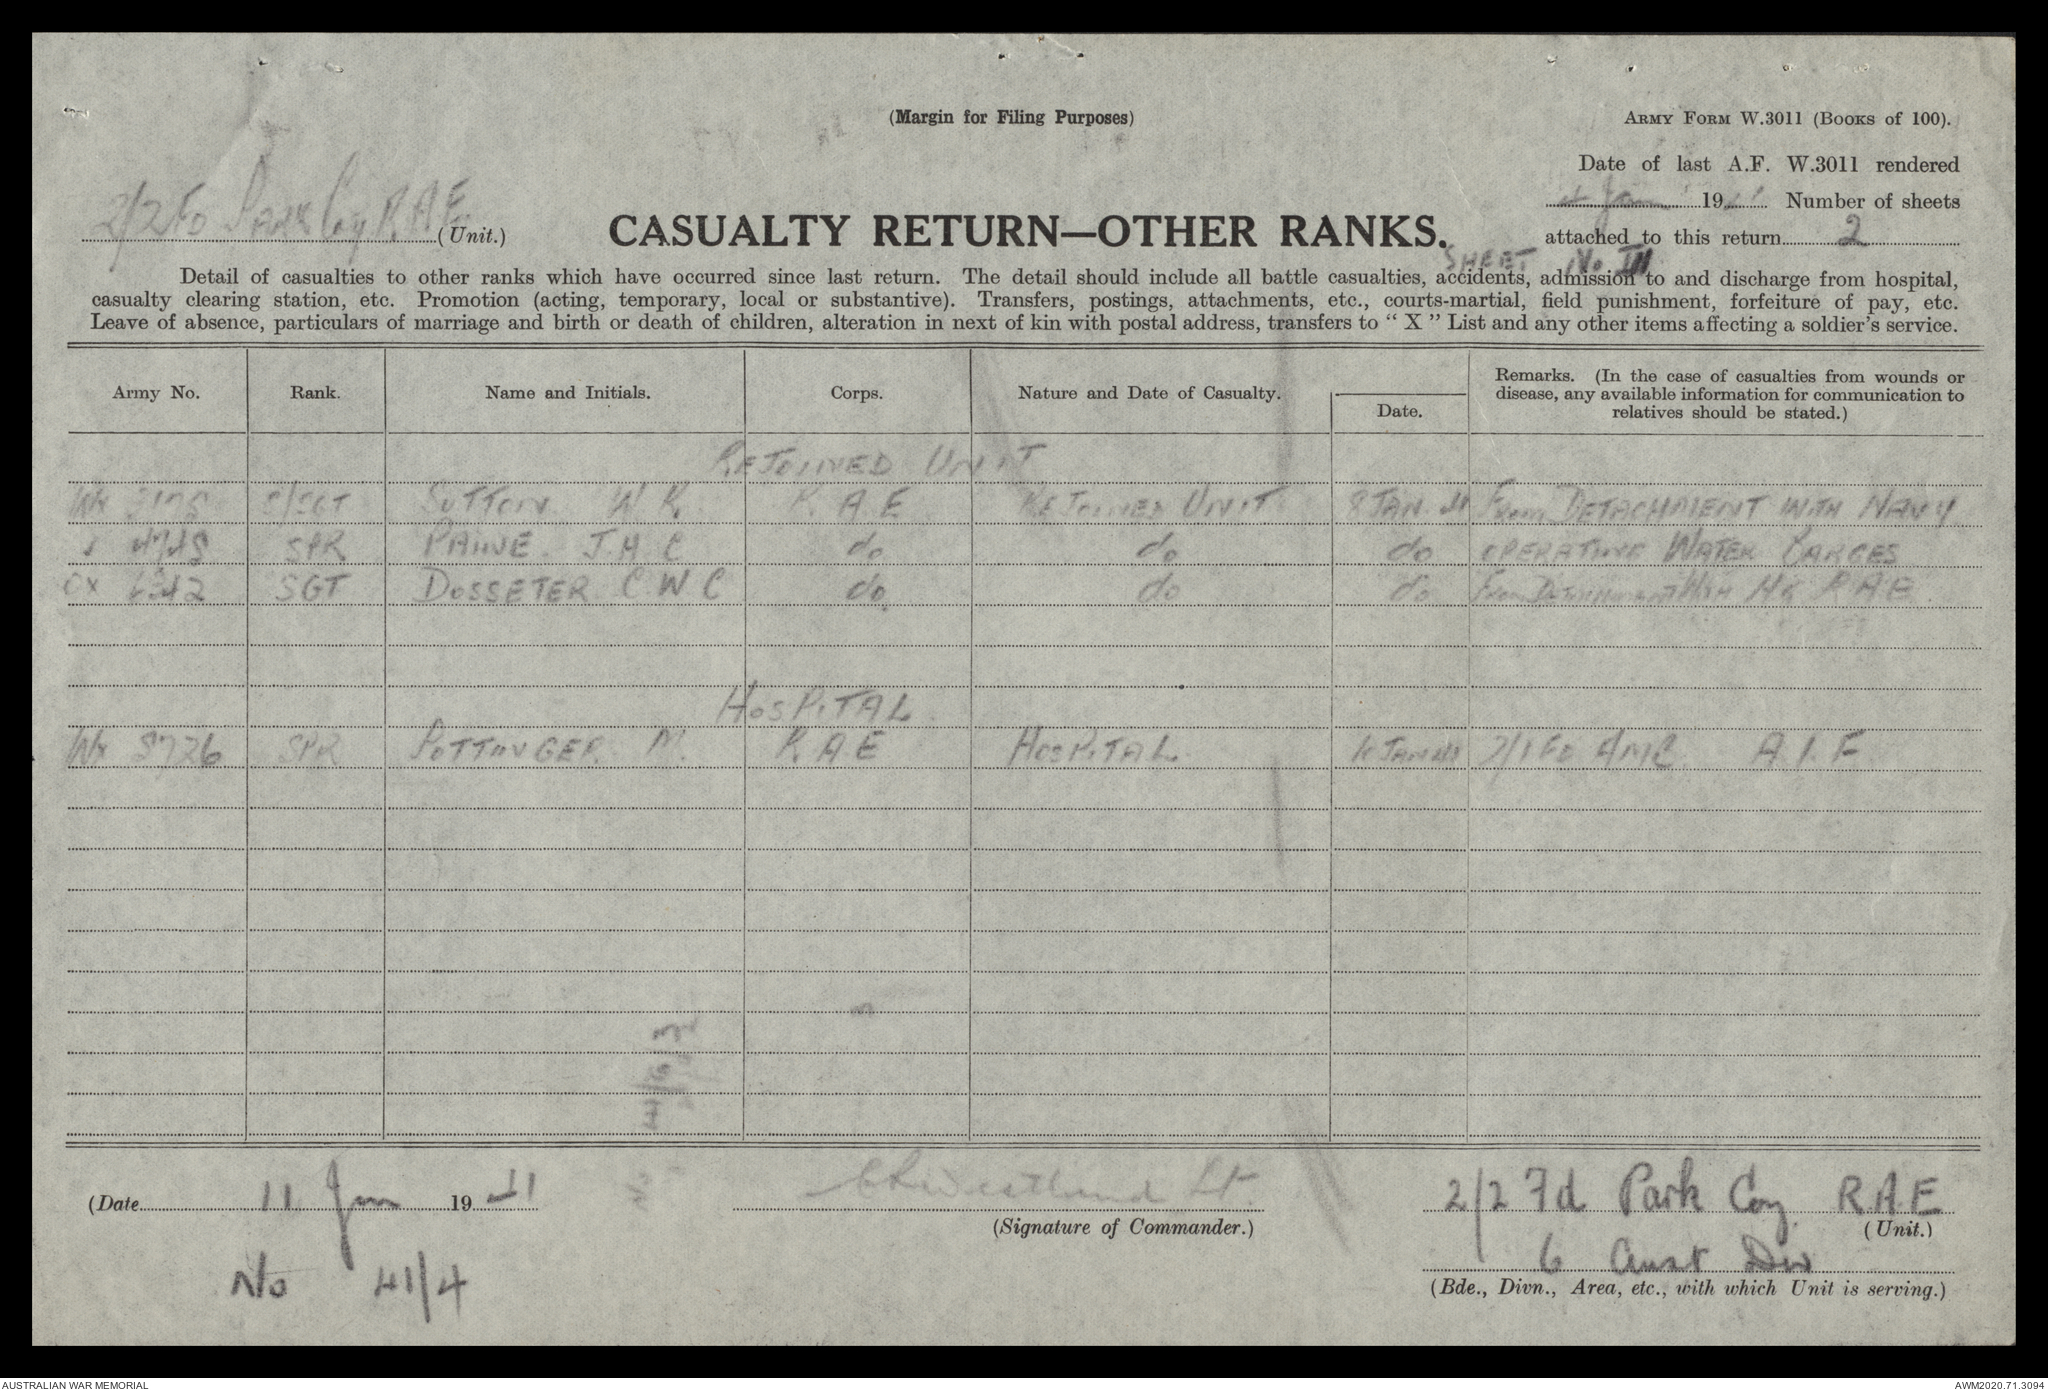 (Margin for Filing Purposes)
ARMY FORM W.3011 (BOOKS of 100).
Date of last A.F. W.3011 rendered
4 Jan 19 Number of sheets
attached to this return 2
2/2 FD PARK Coy R.A.E (Unit.)
CASUALTY RETURN—OTHER RANKS.
SHEET No
Detail of casualties to other ranks which have occurred since last return. The detail should include all battle casualties, accidents, admission to and discharge from hospital,
casualty clearing station, etc. Promotion (acting, temporary, local or substantive). Transfers, postings, attachments, etc., courts-martial, field punishment, forfeiture of pay, etc.
Leave of absence, particulars of marriage and birth or death of children, alteration in next of kin with postal address, transfers to " X " List and any other items affecting a soldier's service.
Army No. Rank. Name and Initials. Corps. Nature and Date of Casualty. Date. Remarks. (In the case of casualties from wounds or
disease, any available information for communication to
relatives should be stated.)
REJOINED UNIT
WX S/SGT SUTTON W K. R. A. E REJOINED UNIT 8 JAN. 41 From DETACHMENT WITH NAVY
SPR PAINE. J. H. C do do do OPERATING WATER BARGES
SGT DOSSETER C W C do do do From DETACHMENT WITH HQ R A E
HOSPITAL
WX 3726 SPR POTTINGER. M. R. A. E HOSPITAL JAN 41 2/1 FD AMB A. I. F
(Date 11 Jan 19 41
(Signature of Commander.)
2/2 Fd Park Coy. R.A.E
(Unit.)
6 Aust Div
(Bde., Divn., Area, etc., with which Unit is serving.)
No 41/4
AUSTRALIAN WAR MEMORIAL
AWM2020.71.3094